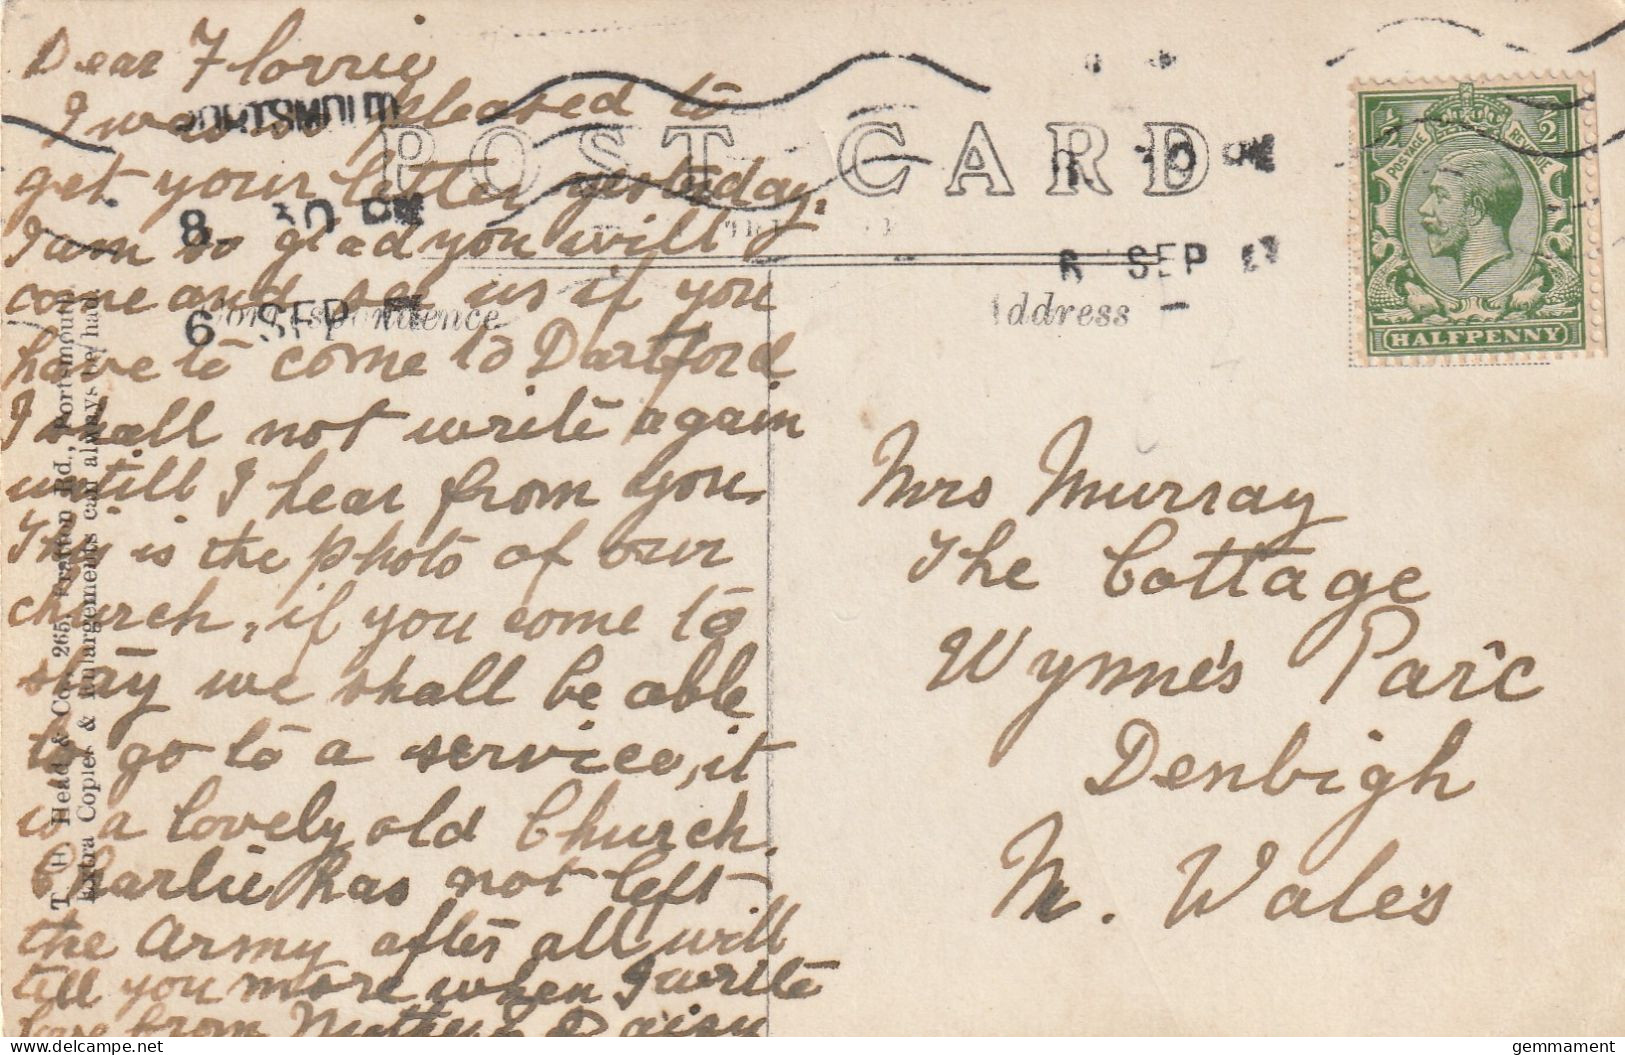 Dear Florrie
I was so pleased to
get your letter yesterday.
I am so glad you will
come and see us if you
have to come to Dartford
I shall not write again
untill I hear from you.
This is the photo of our
church, if you come to
stay we shall be able
to go to a service, it
is a lovely old Church.
Charlie has not left
the Army after all will
tell you more when I write
love from Mother & Daisy
POST CARD
Correspondence
Address
PORTSMOUTH
8. 30 PM
6 SEP
30 PM
SEP
POSTAGE
REVENUE
½
½
HALFPENNY
Mrs Murray
The Cottage
Wynne's Parc
Denbigh
N. Wales
T. H. Head & Co., 265, Fratton Rd., Portsmouth.
Extra Copies & Enlargements can always be had.
gemmament
delcampe.net